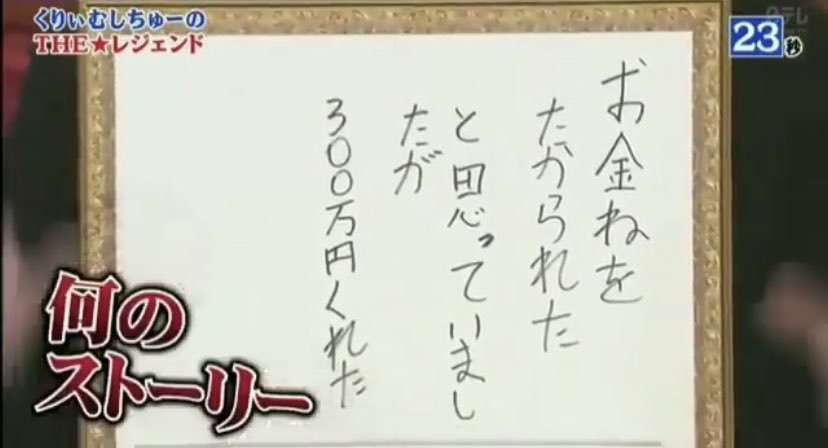 くりぃむしちゅーの
THE★レジェンド
23秒
日テレ
お金ねを
たかられた
と思っていまし
たが
300万円くれた
何の
ストーリー